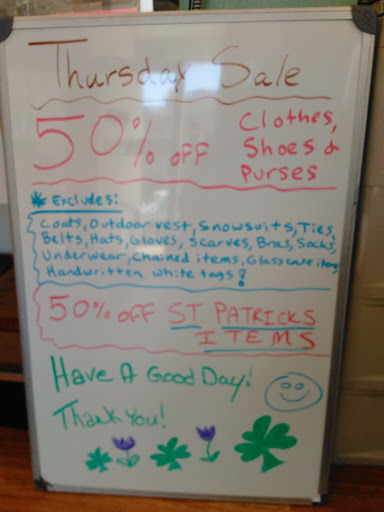 Thursday Sale
50% OFF Clothes,
Shoes &
Purses
* Excludes:
Coats, Outdoor vest, Snowsuits, Ties,
Belts, Hats, Gloves, Scarves, Bras, Socks,
Underwear, Chained items, Glasscase items
Handwritten white tags!
50% OFF ST PATRICKS
ITEMS
Have A Good Day!
Thank You!